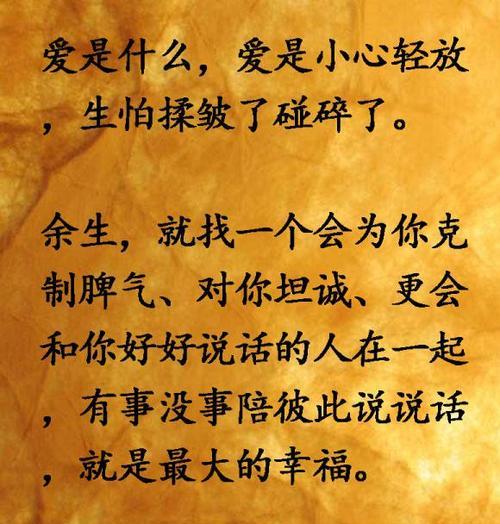 爱是什么，爱是小心轻放
，生怕揉皱了碰碎了。
余生，就找一个会为你克
制脾气、对你坦诚、更会
和你好好说话的人在一起
，有事没事陪彼此说说话
，就是最大的幸福。